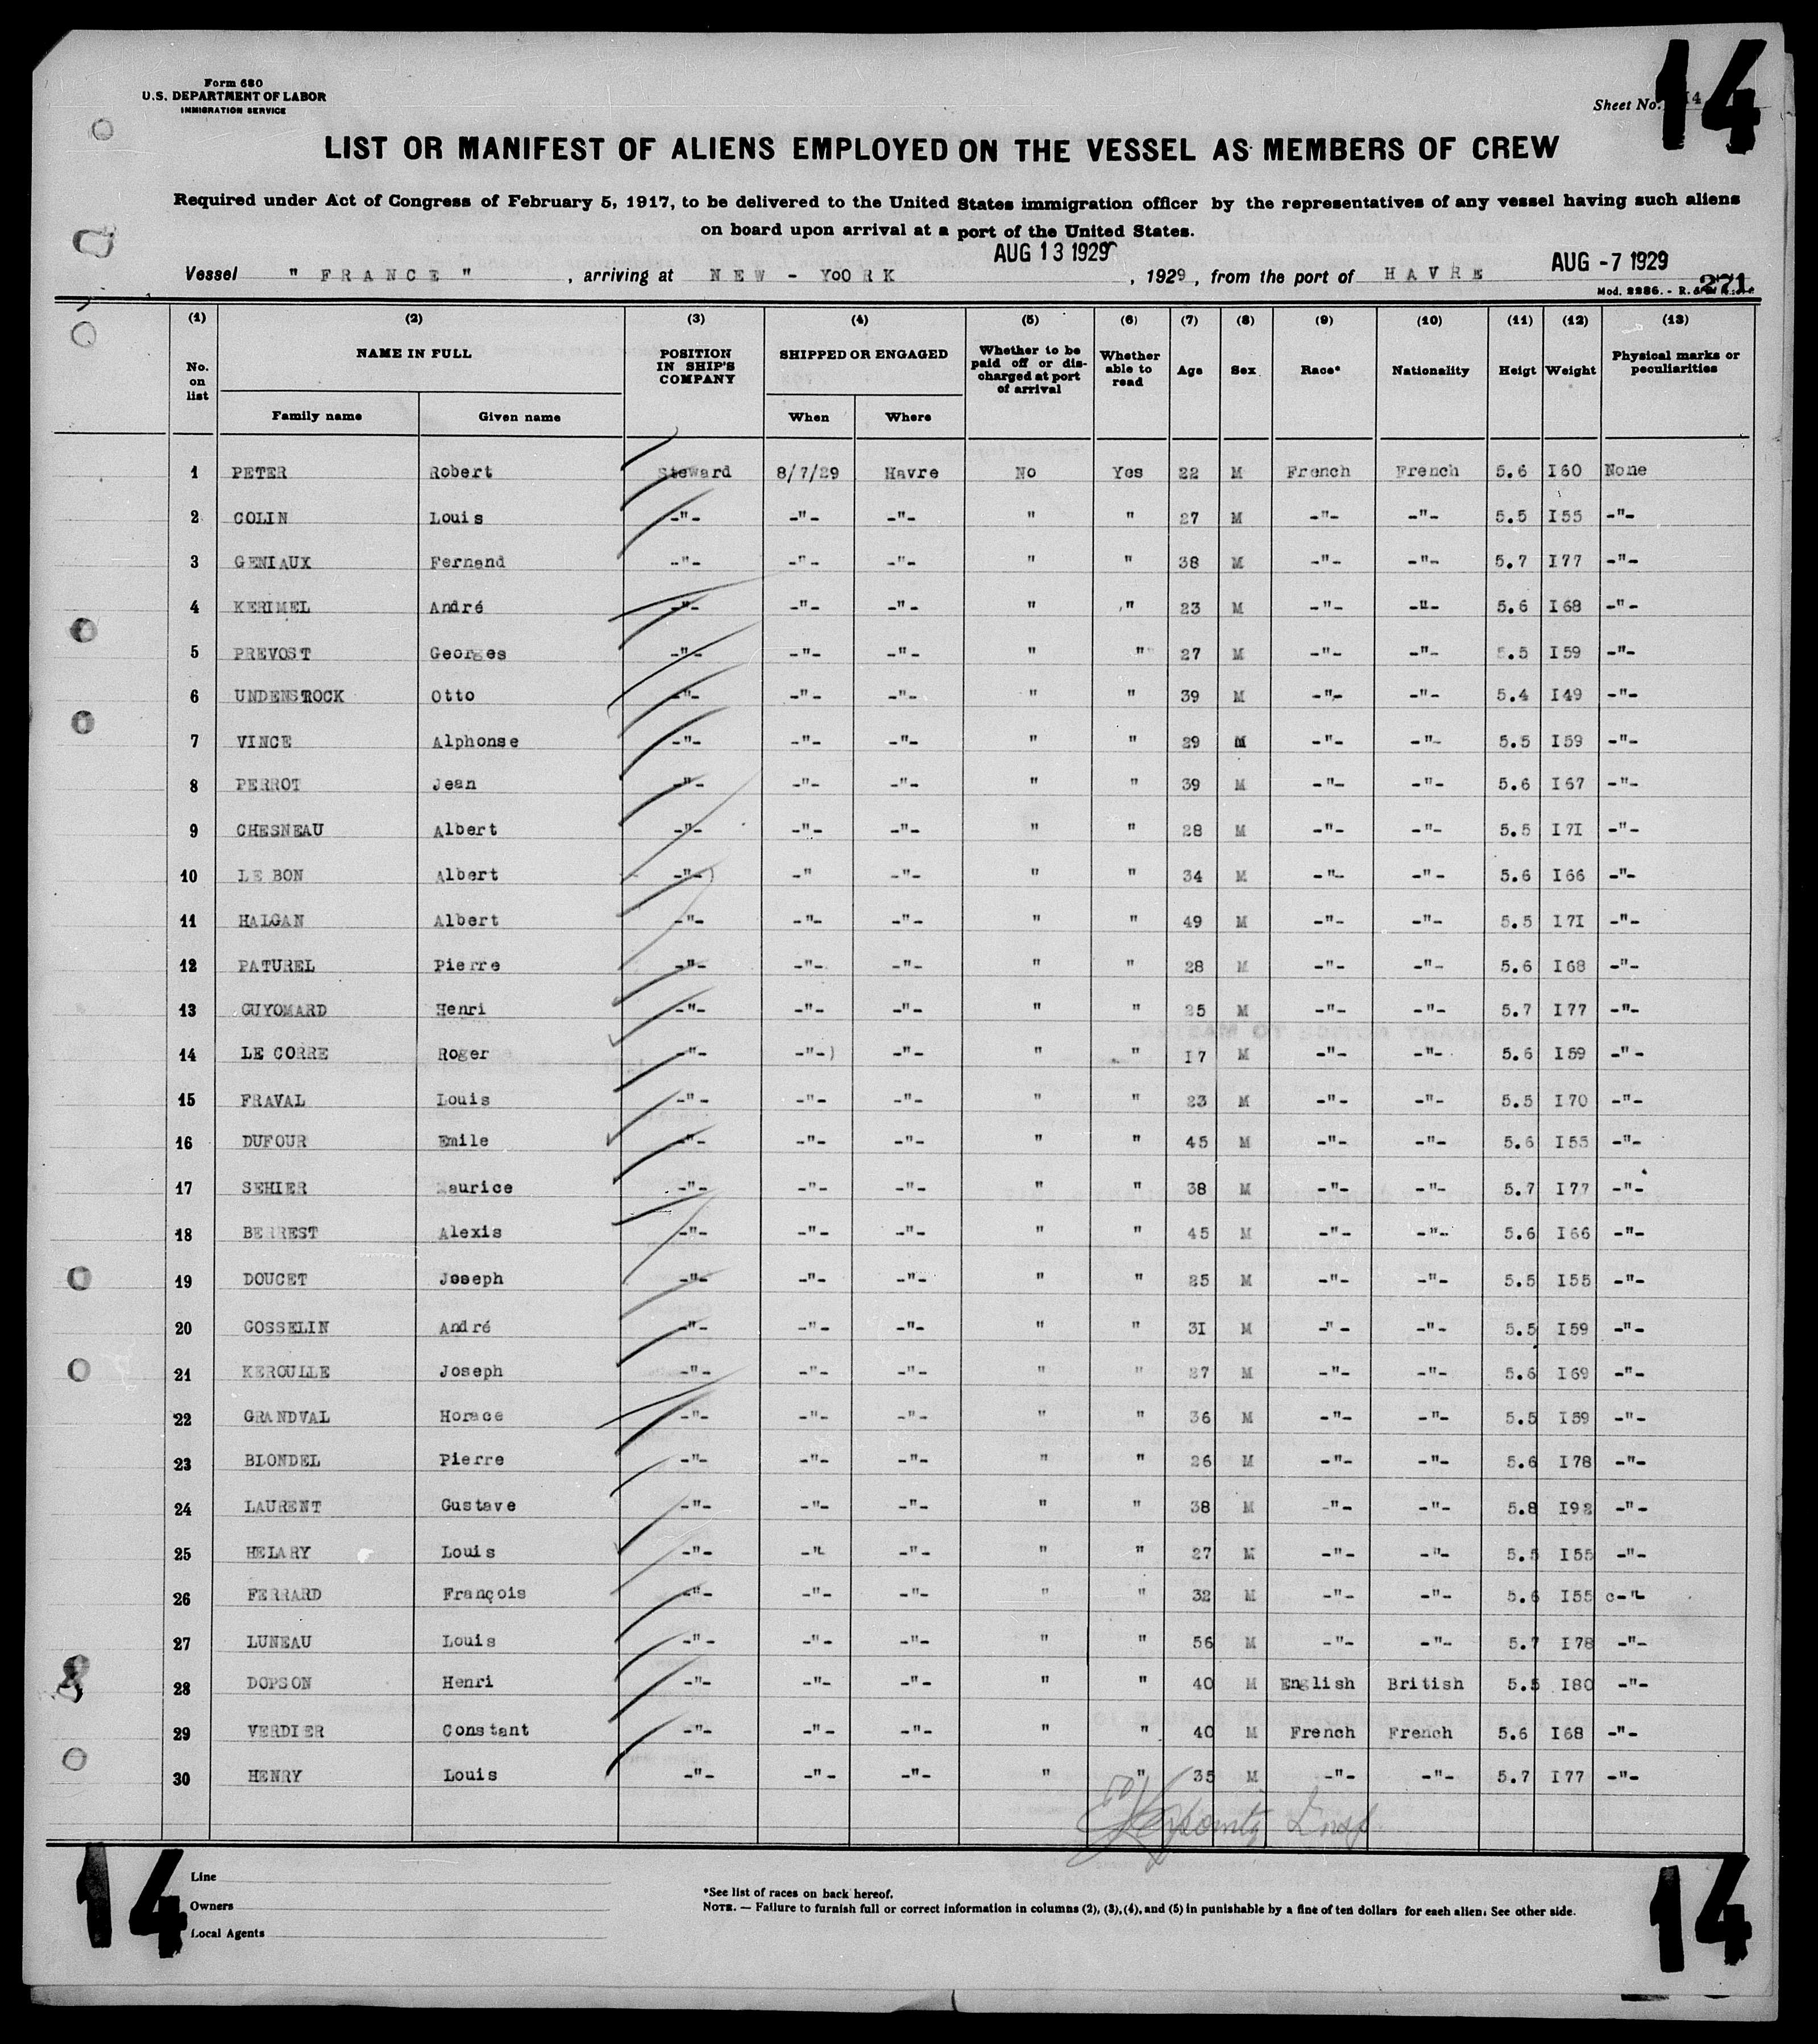 Form 680
U.S. DEPARTMENT OF LABOR
IMMIGRATION SERVICE
Sheet No. 14
14
LIST OR MANIFEST OF ALIENS EMPLOYED ON THE VESSEL AS MEMBERS OF CREW
Required under Act of Congress of February 5, 1917, to be delivered to the United States immigration officer by the representatives of any vessel having such aliens
on board upon arrival at a port of the United States.
AUG 13 1929
AUG -7 1929
Vessel " FRANCE " , arriving at NEW - YoORK , 1929 , from the port of HAVRE
Mod. 2286. - R.
271
(1) (2) (3) (4) (5) (6) (7) (8) (9) (10) (11) (12) (13)
No. on list NAME IN FULL POSITION IN SHIP'S COMPANY SHIPPED OR ENGAGED Whether to be paid off or discharged at port of arrival Whether able to read Age Sex Race* Nationality Heigt Weight Physical marks or peculiarities
Family name Given name When Where
1 PETER Robert Steward 8/7/29 Havre No Yes 22 M French French 5.6 I60 None
2 COLIN Louis -"- -"- -"- " " 27 M -"- -"- 5.5 I55 -"-
3 GENIAUX Fernand -"- -"- -"- " " 38 M -"- -"- 5.7 I77 -"-
4 KERIMEL André -"- -"- -"- " " 23 M -"- -"- 5.6 I68 -"-
5 PREVOST Georges -"- -"- -"- " " 27 M -"- -"- 5.5 I59 -"-
6 UNDENSTROCK Otto -"- -"- -"- " " 39 M -"- -"- 5.4 I49 -"-
7 VINCE Alphonse -"- -"- -"- " " 29 M -"- -"- 5.5 I59 -"-
8 PERROT Jean -"- -"- -"- " " 39 M -"- -"- 5.6 I67 -"-
9 CHESNEAU Albert -"- -"- -"- " " 28 M -"- -"- 5.5 I7I -"-
10 LE BON Albert -"-) -" -"- " " 34 M -"- -"- 5.6 I66 -"-
11 HALGAN Albert -"- -"- -"- " " 49 M -"- -"- 5.5 I7I -"-
12 PATUREL Pierre -"- -"- -"- " " 28 M -"- -"- 5.6 I68 -"-
13 GUYOMARD Henri -"- -"- -"- " " 25 M -"- -"- 5.7 I77 -"-
14 LE CORRE Roger -"- -"-) -"- " " I7 M -"- -"- 5.6 I59 -"-
15 FRAVAL Louis -"- -"- -"- " " 23 M -"- -"- 5.5 I70 -"-
16 DUFOUR Emile -"- -"- -"- " " 45 M -"- -"- 5.6 I55 -"-
17 SEHIER Maurice -"- -"- -"- " " 38 M -"- -"- 5.7 I77 -"-
18 BERREST Alexis -"- -"- -"- " " 45 M -"- -"- 5.6 I66 -"-
19 DOUCET Joseph -"- -"- -"- " " 25 M -"- -"- 5.5 I55 -"-
20 GOSSELIN André -"- -"- -"- " " 3I M -"- -"- 5.5 I59 -"-
21 KEROULLE Joseph -"- -"- -"- " " 27 M -"- -"- 5.6 I69 -"-
22 GRANDVAL Horace -"- -"- -"- " " 36 M -"- -"- 5.5 I59 -"-
23 BLONDEL Pierre -"- -"- -"- " " 26 M -"- -"- 5.6 I78 -"-
24 LAURENT Gustave -"- -"- -"- " " 38 M -"- -"- 5.8 I92 -"-
25 HELARY Louis -"- -" -"- " " 27 M -"- -"- 5.5 I55 -"-
26 FERRARD François -"- -"- -"- " " 32 M -"- -"- 5.6 I55 c-"
27 LUNEAU Louis -"- -"- -"- " " 56 M -"- -"- 5.7 I78 -"-
28 DOPSON Henri -"- -"- -"- " " 40 M English British 5.5 I80 -"-
29 VERDIER Constant -"- -"- -"- " " 40 M French French 5.6 I68 -"-
30 HENRY Louis -"- -"- -"- " " 35 M -"- -"- 5.7 I77 -"-
Insp
14
Line
Owners
Local Agents
*See list of races on back hereof.
NOTE. — Failure to furnish full or correct information in columns (2), (3), (4), and (5) in punishable by a fine of ten dollars for each alien. See other side.
14